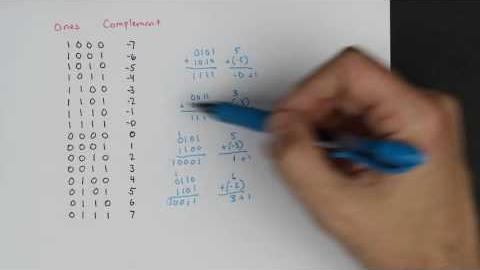 Ones Complement
1 0 0 0 -7
1 0 0 1 -6
1 0 1 0 -5
1 0 1 1 -4
1 1 0 0 -3
1 1 0 1 -2
1 1 1 0 -1
1 1 1 1 -0
0 0 0 0 0
0 0 0 1 1
0 0 1 0 2
0 0 1 1 3
0 1 0 0 4
0 1 0 1 5
0 1 1 0 6
0 1 1 1 7
0101 5
+ 1010 +(-5)
1111 -0 +1
0011 3
1
0101 5
1100 +(-3)
10001 1 +1
1
0110 6
1101 +(-2)
10011 3 +1